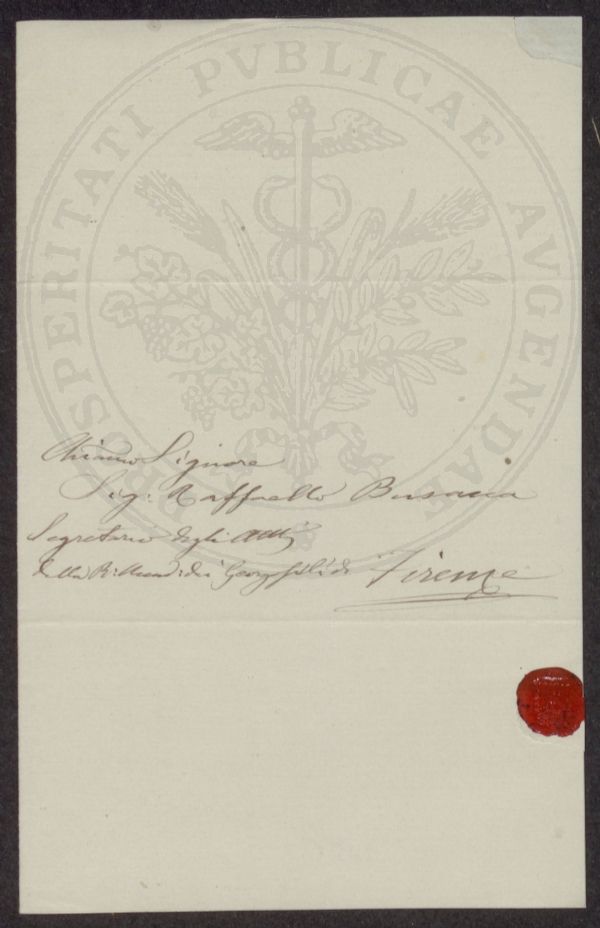 PROSPERITATI PVBLICAE AVGENDAE
Chiarmo Signore
Sig: Raffaello Busacca
Segretario degli atti
della R: Accad: dei Georgofili di Firenze